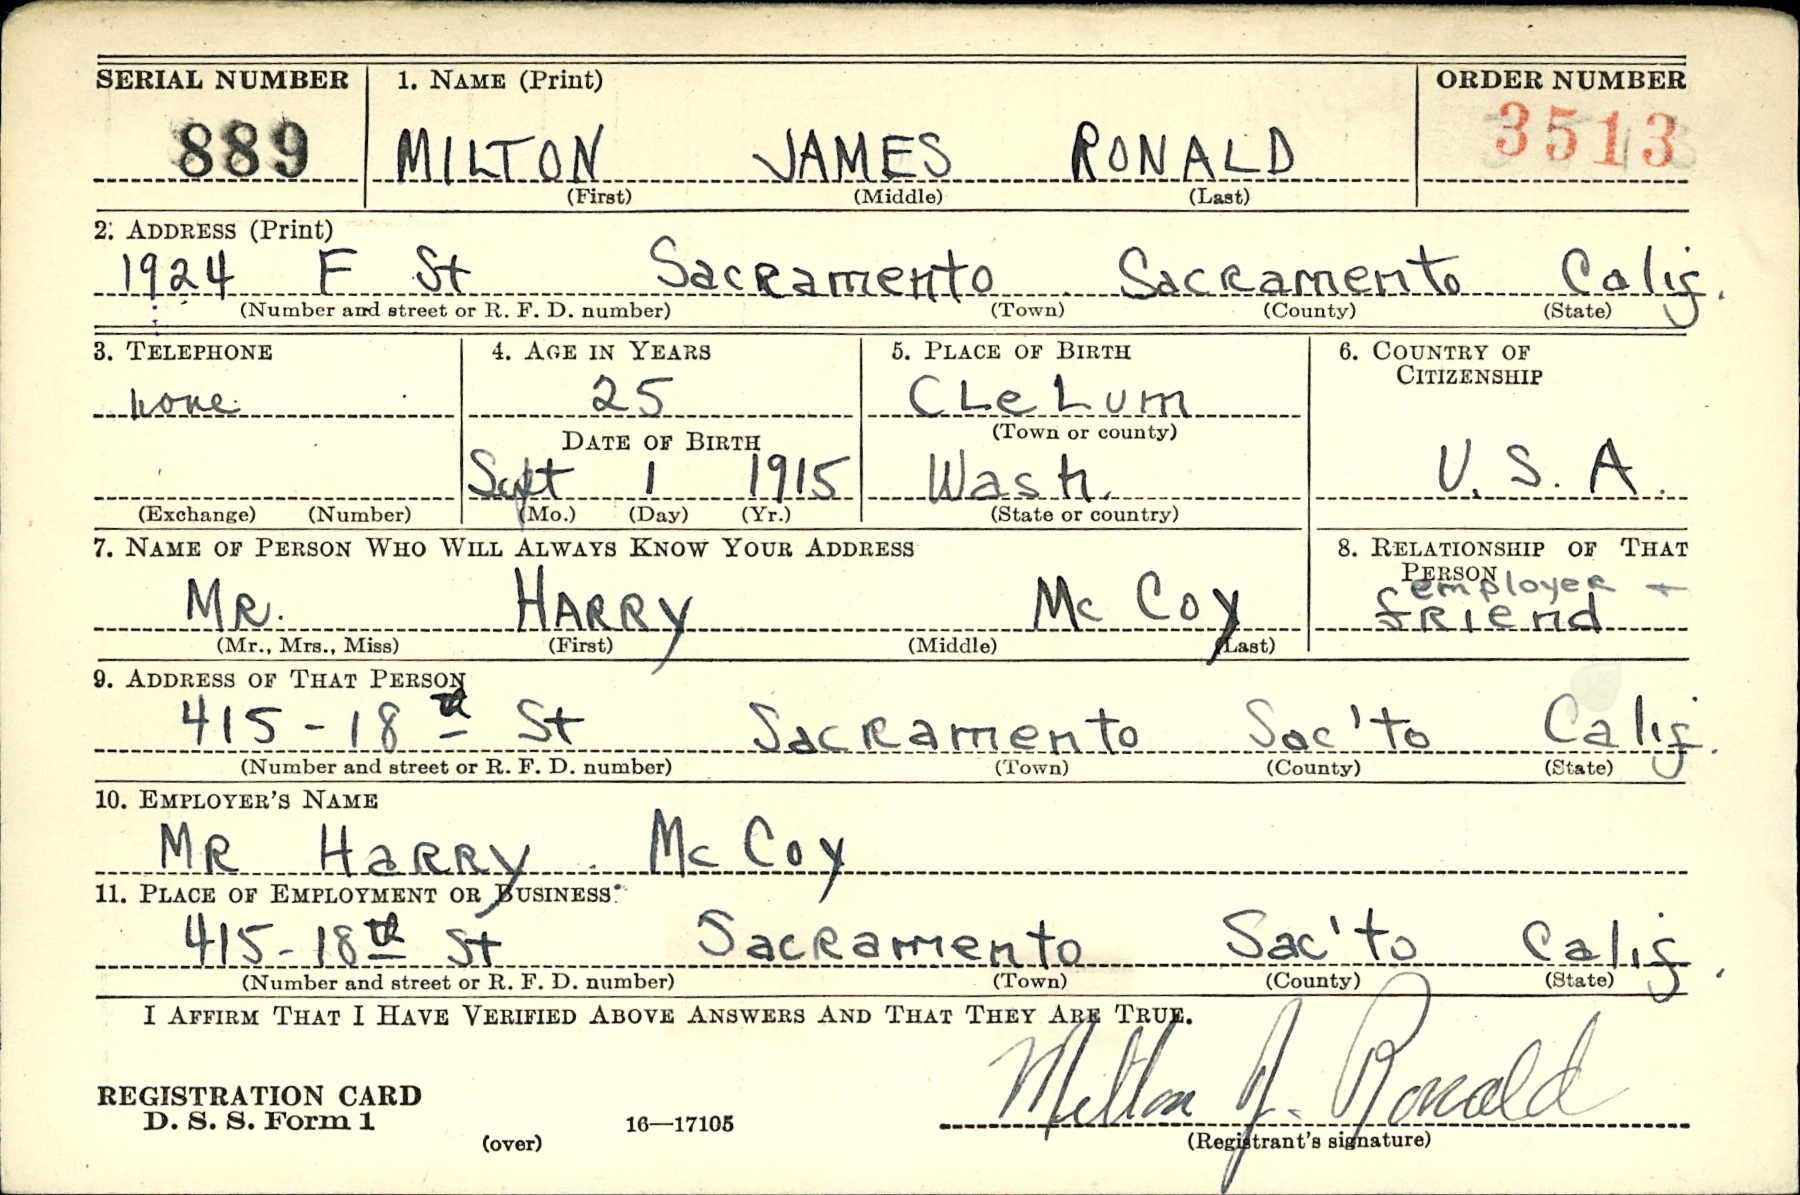 SERIAL NUMBER 1. NAME (Print) ORDER NUMBER
889 MILTON JAMES RONALD 3513
(First) (Middle) (Last)
2. ADDRESS (Print)
1924 F St Sacramento Sacramento Calif.
(Number and street or R. F. D. number) (Town) (County) (State)
3. TELEPHONE 4. AGE IN YEARS 5. PLACE OF BIRTH 6. COUNTRY OF
CITIZENSHIP
none 25 CLe Lum
(Town or county)
DATE OF BIRTH
Sept 1 1915 Wash. U.S.A.
(Exchange) (Number) (Mo.) (Day) (Yr.) (State or country)
7. NAME OF PERSON WHO WILL ALWAYS KNOW YOUR ADDRESS 8. RELATIONSHIP OF THAT
PERSON
employer +
MR. HARRY Mc Coy friend
(Mr., Mrs., Miss) (First) (Middle) (Last)
9. ADDRESS OF THAT PERSON
415-18th St Sacramento Sac'to Calif.
(Number and street or R. F. D. number) (Town) (County) (State)
10. EMPLOYER'S NAME
MR HARRY Mc Coy
11. PLACE OF EMPLOYMENT OR BUSINESS
415-18th St Sacramento Sac'to Calif.
(Number and street or R. F. D. number) (Town) (County) (State)
I AFFIRM THAT I HAVE VERIFIED ABOVE ANSWERS AND THAT THEY ARE TRUE.
Milton J. Ronald
REGISTRATION CARD
D. S. S. Form 1 16—17105
(over) (Registrant's signature)